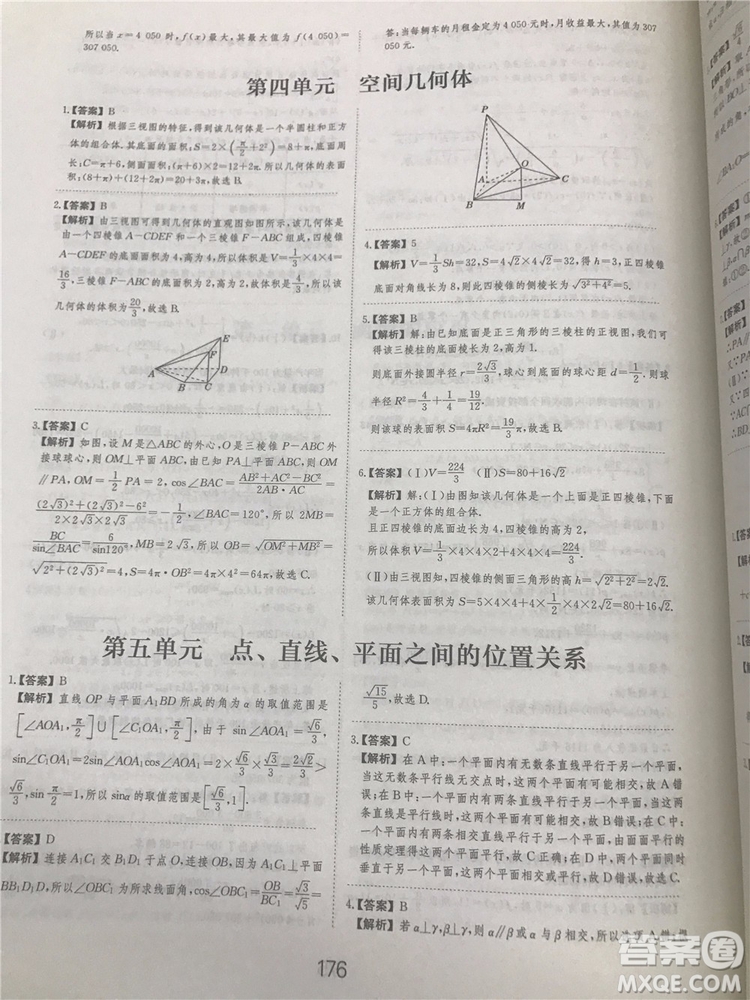 所以当 x=4 050 时，f(x)最大，其值为 f(4 050)=
307 050.
答：当每辆车的月租金定为 4 050 元时，月收益最大，其值为 307
050 元.
第四单元　空间几何体
1.【答案】B
【解析】根据三视图的特征，得到该几何体是一个半圆柱和正方
体的组合体. 其底面的面积，S=2×(π/2+2²)=8+π，底面周
长：C=π+6，侧面面积：(π+6)×2=12+2π. 所以几何体的表面
积：(8+π)+(12+2π)=20+3π，故选 B.
2.【答案】B
【解析】由三视图可得到几何体的直观图如图所示，该几何体是
由一个四棱锥 A-CDEF 和一个三棱锥 F-ABC 组成，四棱锥
A-CDEF 的底面面积为 4，高为 4，所以体积是 V=1/3×4×4=
16/3，三棱锥 F-ABC 的底面积为 2，高为 2，所以该
几何体的体积为 20/3，故选 B.
E
F
A
D
B
C
3.【答案】C
【解析】如图，设 M 是△ABC 的外心，O 是三棱锥 P-ABC 外
接球球心，则 OM⊥平面 ABC，又 PA⊥平面 ABC，则 OM
∥PA，OM=1/2 PA=2，cos∠BAC=(AB²+AC²-BC²)/(2AB·AC)=
((2√3)²+(2√3)²-6²)/(2×2√3×2√3)=-1/2，∠BAC=120°，所以 2MB=
BC/sin∠BAC=6/sin120°，MB=2√3，所以 OB=√(OM²+MB²)=
√(2²+(2√3)²)=4，S=4π·OB²=4π×4²=64π，故选 C.
P
O
A
C
B
M
4.【答案】5
【解析】V=1/3 Sh=32，S=4√2×4√2=32，得 h=3，正四棱锥
底面对角线长为 8，因此正四棱锥的侧棱长为 √(3²+4²)=5.
5.【答案】B
【解析】解：由已知底面是正三角形的三棱柱的正视图，我们可
得该三棱柱的底面棱长为 2，高为 1.
则底面外接圆半径 r=2√3/3，球心到底面的球心距 d=1/2，则球
半径 R²=4/3+1/4=19/12，
则该球的表面积 S=4πR²=19/3 π，故选 B.
6.【答案】(Ⅰ)V=224/3　(Ⅱ)S=80+16√2
【解析】解：(Ⅰ)由图知该几何体上面是正四棱锥，下面
是一个正方体的组合体.
且正四棱锥的底面边长为 4，四棱锥的高为 2，
所以体积 V=1/3×4×4×2+4×4×4=224/3.
(Ⅱ)由三视图知，四棱锥的侧面三角形的高 h=√(2²+2²)=2√2.
该几何体表面积为 S=5×4×4+4×1/2×4×2√2=80+16√2.
第五单元　点、直线、平面之间的位置关系
1.【答案】B
【解析】直线 OP 与平面 A₁BD 所成的角为 α 的取值范围是
[∠AOA₁，π/2]∪[∠C₁OA₁，π/2]，由于 sin∠AOA₁=√6/3，
sin∠C₁OA₁=2sin∠AOA₁cos∠AOA₁=2×√6/3×√3/3=2√2/3>
√6/3，sin π/2=1. 所以 sinα 的取值范围是[√6/3，1].
【答案】D
【解析】连接 A₁C₁ 交 B₁D₁ 于点 O，连接 OB，因为 A₁C₁⊥平面
BB₁D₁D，所以∠OBC₁ 为所求线面角，cos∠OBC₁=OB/BC₁=√3/√5=
√15/5，故选 D.
3.【答案】C
【解析】在 A 中：一个平面内有无数条直线平行于另一个平面，
当这无数条平行线无交点时，这两个平面有可能相交，故 A 错
误；在 B 中：一个平面内有两条直线平行于另一个平面，当这两
条直线平行时，这两个平面有可能相交，故 B 错误；在 C 中：一
个平面内有任何直线都平行于另一个平面，由面面平行的
性质定理得这两个平面平行，故 C 正确；在 D 中：一个平面内有
两条直线平行于另一个平面，当这两条直线平行时，这两个平
面有可能相交，故 D 错误. 故选 C.
4.【答案】B
【解析】若 α⊥γ，β⊥γ，则 α∥β 或 α 与 β 相交，所以选项 A 错误
176
答案圈
MXQE.COM